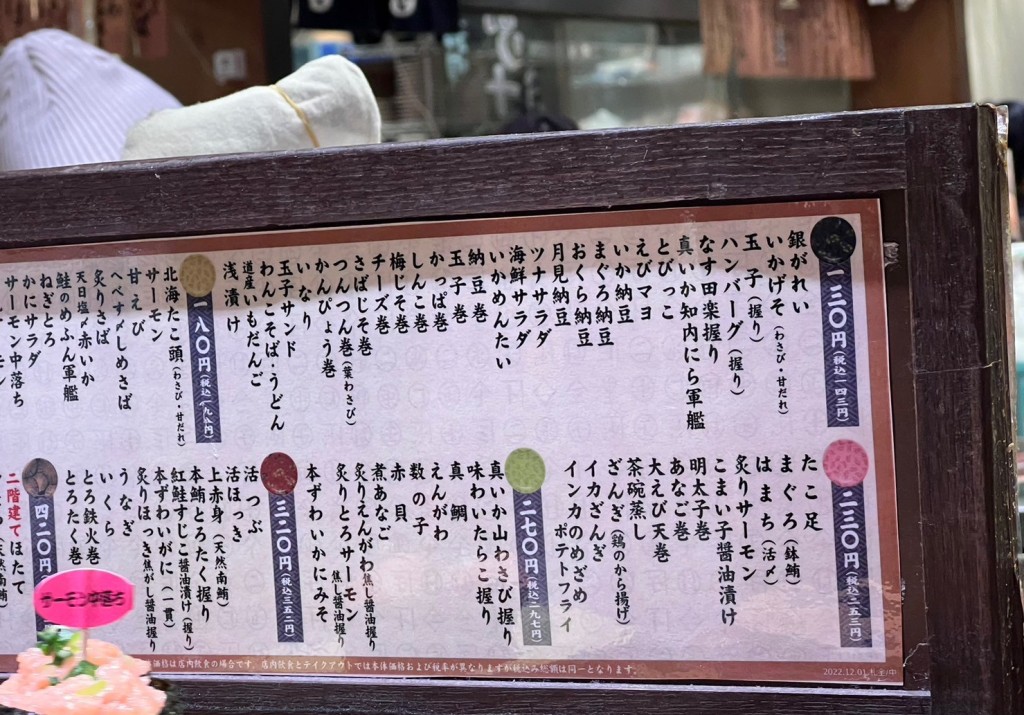 一三〇円(税込一四三円)
銀がれい
いかげそ(わさび・甘だれ)
玉子(握り)
ハンバーグ(握り)
なす田楽握り
真いか知内にら軍艦
とびっこ
えびマヨ
いか納豆
まぐろ納豆
おくら納豆
月見納豆
ツナサラダ
海鮮サラダ
いかめんたい
納豆巻
玉子巻
かっぱ巻
しんこ巻
梅じそ巻
チーズ巻
さばじそ巻
つんつん巻(葉わさび)
かんぴょう巻
いなり
玉子サンド
わんこそば・うどん
道産いもだんご
浅漬け
一八〇円(税込一九八円)
北海たこ頭(わさび・甘だれ)
サーモン
甘えび
へべす〆しめさば
炙りさば
天日塩〆赤いか
鮭のめふん軍艦
ねぎとろ
かにサラダ
サーモン中落ち
二三〇円(税込二五三円)
たこ足
まぐろ(鉢鮪)
はまち(活〆)
炙りサーモン
こまい子醤油漬け
明太子巻
あなご巻
大えび天巻
茶碗蒸し
ざんぎ(鶏のから揚げ)
イカざんぎ
インカのめざめ
ポテトフライ
二七〇円(税込二九七円)
真いか山わさび握り
味わいたらこ握り
真鯛
えんがわ
数の子
赤貝
煮あなご
炙りえんがわ焦し醤油握り
炙りとろサーモン焦し醤油握り
本ずわいかにみそ
三二〇円(税込三五二円)
活つぶ
活ほっき
上赤身(天然南鮪)
本鮪とろたく握り
紅鮭すじこ醤油漬け(握り)
本ずわいがに(一貫)
炙りほっき焦がし醤油握り
うなぎ
いくら
とろ鉄火巻
とろたく巻
四二〇円
二階建てほたて
サーモン中落ち
体価格は店内飲食の場合です。店内飲食とテイクアウトでは本体価格および税率が異なりますが税込み総額は同一となります。
2022.12.01